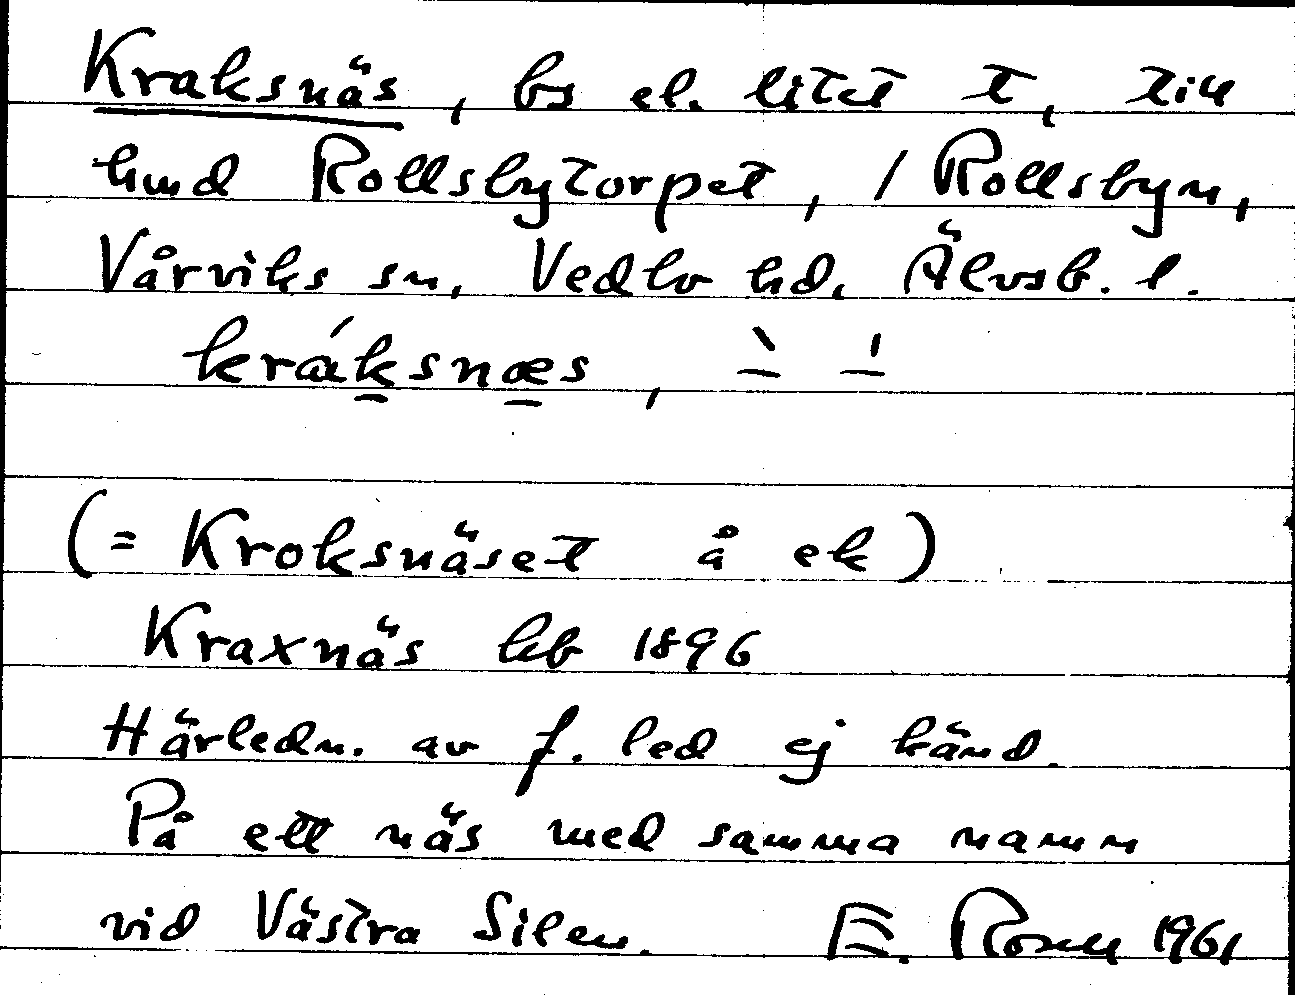 Kraksnäs, bs el. litet t, till
hmd Rollsbytorpet, / Rollsbyn,
Vårviks sn, Vedbo hd, Älvsb. l.
kráksnæs, ̀– ́–
(= Kroksnäset å ek)
Kraxnäs hb 1896
Härledn. av f. led ej känd.
På ett näs med samma namn
vid Västra Silen. E. Rosell 1961